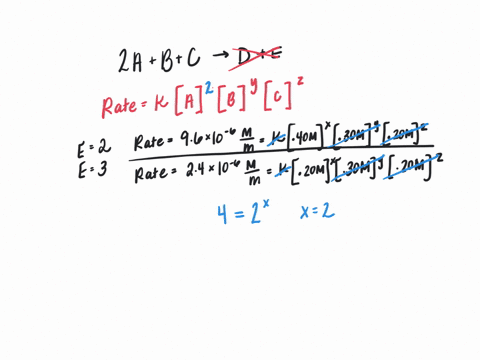 2A + B + C → D + E
Rate = K [A]² [B]ʸ [C]ᶻ
E = 2 Rate = 9.6 × 10⁻⁶ M/m = K [.40M]ˣ [.30M]ʸ [.20M]ᶻ
E = 3 Rate = 2.4 × 10⁻⁶ M/m = K [.20M]ˣ [.30M]ʸ [.20M]ᶻ
4 = 2ˣ x = 2